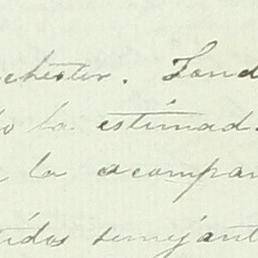 chester. Lond
do la estimad
la acompañ
tidos semejant